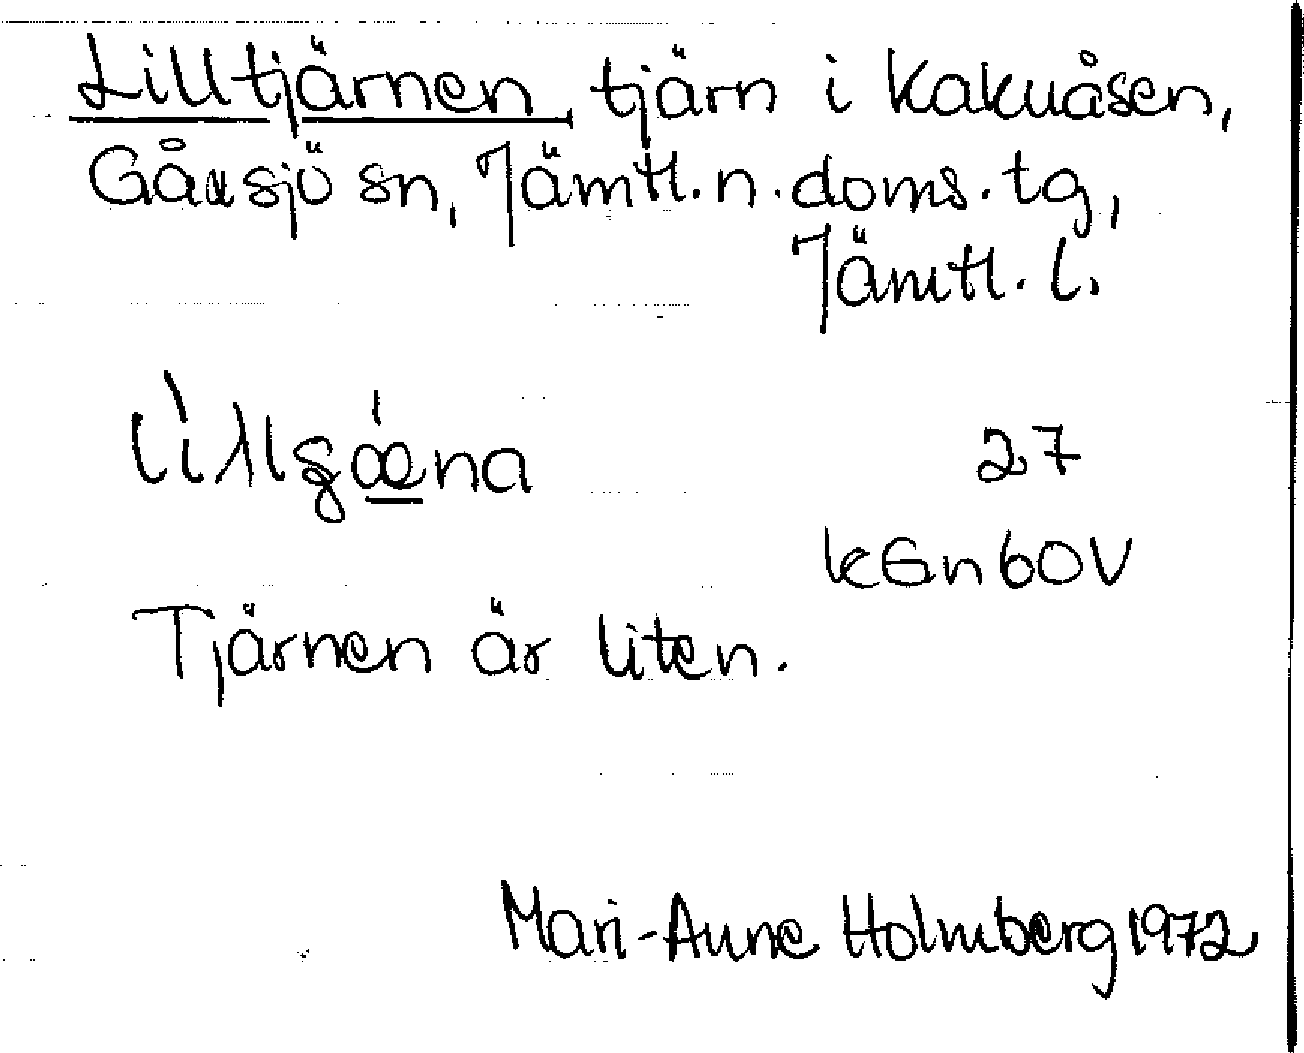 Lilltjärnen, tjärn i Kakuåsen,
Gåxsjö sn, Jämtl. n. doms. tg,
Jämtl. l.
27
kGn60V
Tjärnen är liten.
Mari-Anne Holmberg 1972